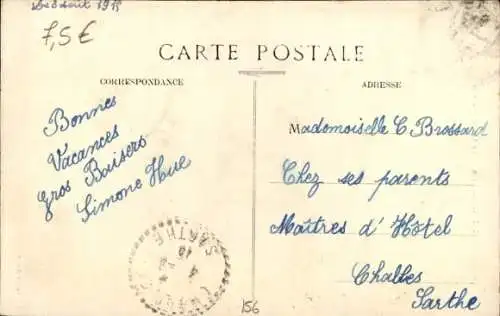 1915
7,5 €
CARTE POSTALE
CORRESPONDANCE
ADRESSE
Bonnes
Vacances
Gros Baisers
Simone Hue
Mademoiselle C Brossard
Chez ses parents
Maîtres d'Hôtel
Challes
Sarthe
SARTHE
156